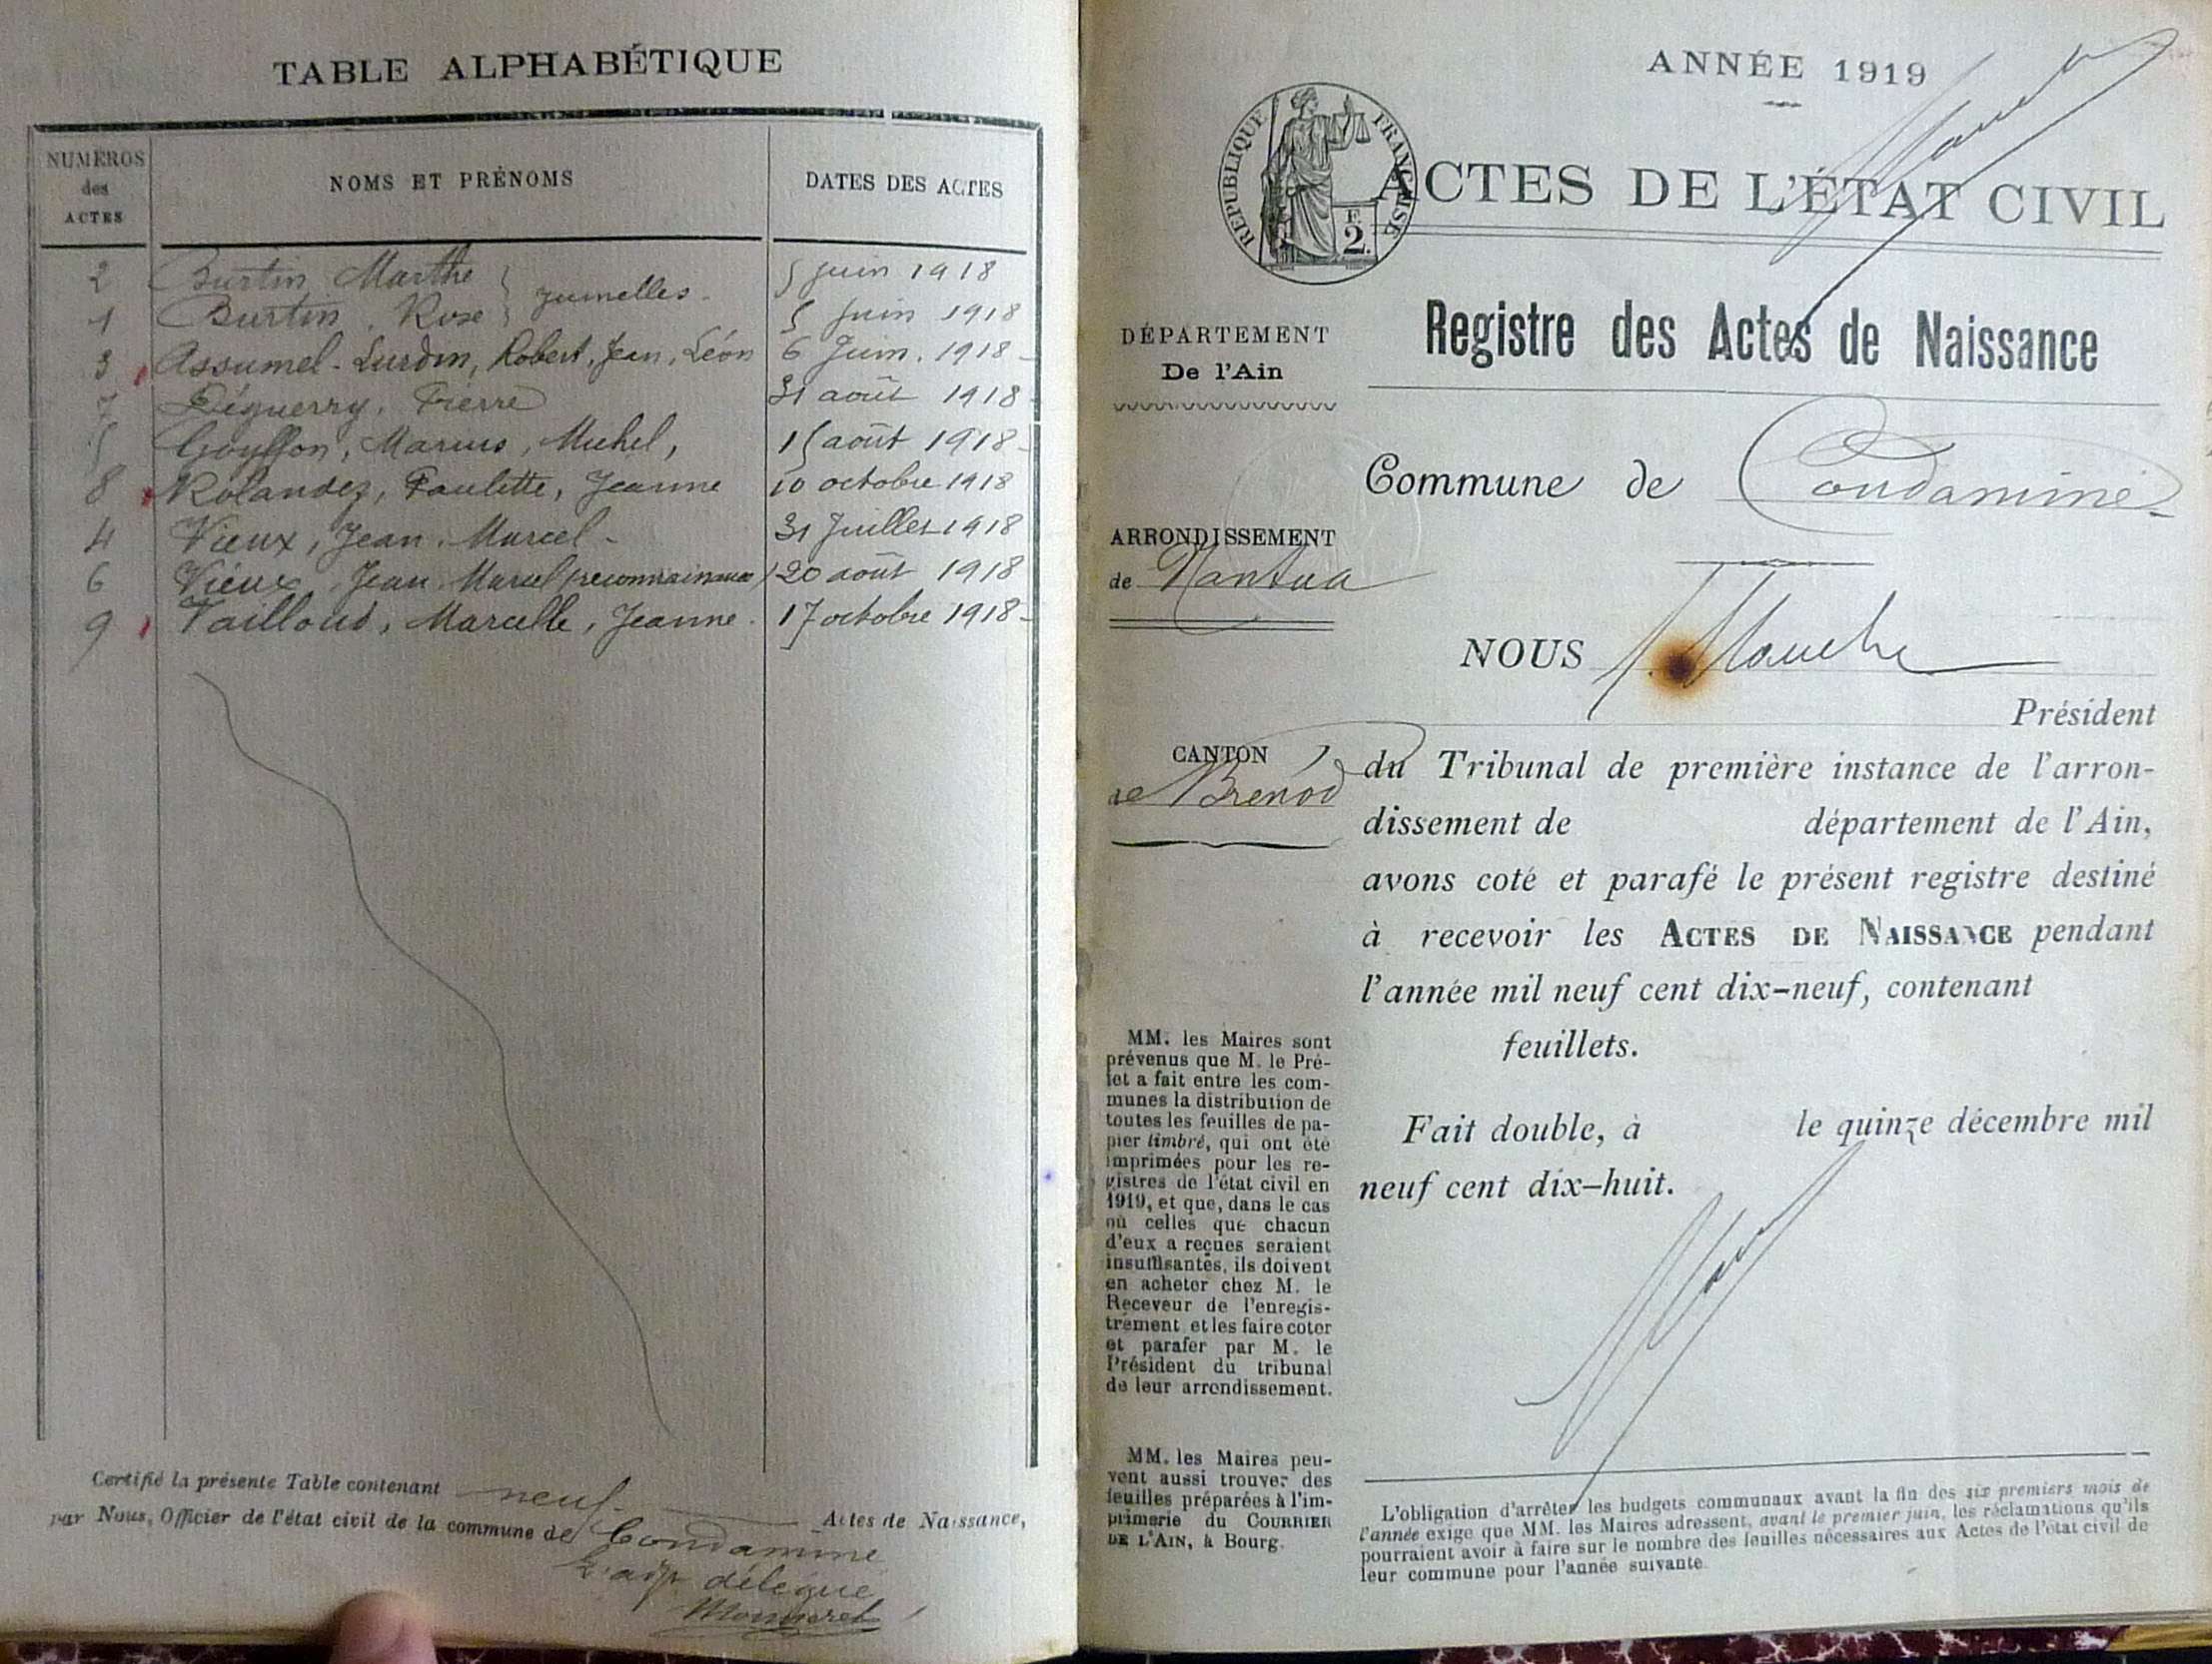 TABLE ALPHABÉTIQUE
NUMÉROS des ACTES
NOMS ET PRÉNOMS
DATES DES ACTES
2 Burtin Marthe } jumelles. 5 juin 1918
1 Burtin, Rose 5 juin 1918
3 Assumel-Lurdin, Robert, Jean, Léon 6 Juin. 1918
7 Déguerry, Pierre 31 août 1918
5 Goyffon, Marius, Michel, 15 août 1918
8 Rolandez, Paulette, Jeanne 10 octobre 1918
4 Vieux, Jean Marcel 31 Juillet 1918
6 Vieux, Jean Marcel (reconnaissance) 20 août 1918
9 Vailloud, Marcelle, Jeanne. 17 octobre 1918
Certifié la présente Table contenant neuf Actes de Naissance,
par Nous, Officier de l'état civil de la commune de Condamine
L'adj. délégué
Monneret
ANNÉE 1919
RÉPUBLIQUE FRANÇAISE
F. 2.
ACTES DE L'ÉTAT CIVIL
Registre des Actes de Naissance
DÉPARTEMENT
De l'Ain
Commune de Condamine
ARRONDISSEMENT
de Nantua
NOUS
Président
CANTON
de Brénod
du Tribunal de première instance de l'arron-
dissement de département de l'Ain,
avons coté et parafé le présent registre destiné
à recevoir les ACTES DE NAISSANCE pendant
l'année mil neuf cent dix-neuf, contenant
feuillets.
Fait double, à le quinze décembre mil
neuf cent dix-huit.
MM. les Maires sont
prévenus que M. le Pré-
fet a fait entre les com-
munes la distribution de
toutes les feuilles de pa-
pier timbré, qui ont été
imprimées pour les re-
gistres de l'état civil en
1919, et que, dans le cas
où celles que chacun
d'eux a reçues seraient
insuffisantes, ils doivent
en acheter chez M. le
Receveur de l'enregis-
trement et les faire coter
et parafer par M. le
Président du tribunal
de leur arrondissement.
MM. les Maires peu-
vent aussi trouver des
feuilles préparées à l'im-
primerie du COURRIER
DE L'AIN, à Bourg.
L'obligation d'arrêter les budgets communaux avant la fin des six premiers mois de
l'année exige que MM. les Maires adressent, avant le premier juin, les réclamations qu'ils
pourraient avoir à faire sur le nombre des feuilles nécessaires aux Actes de l'état civil de
leur commune pour l'année suivante.